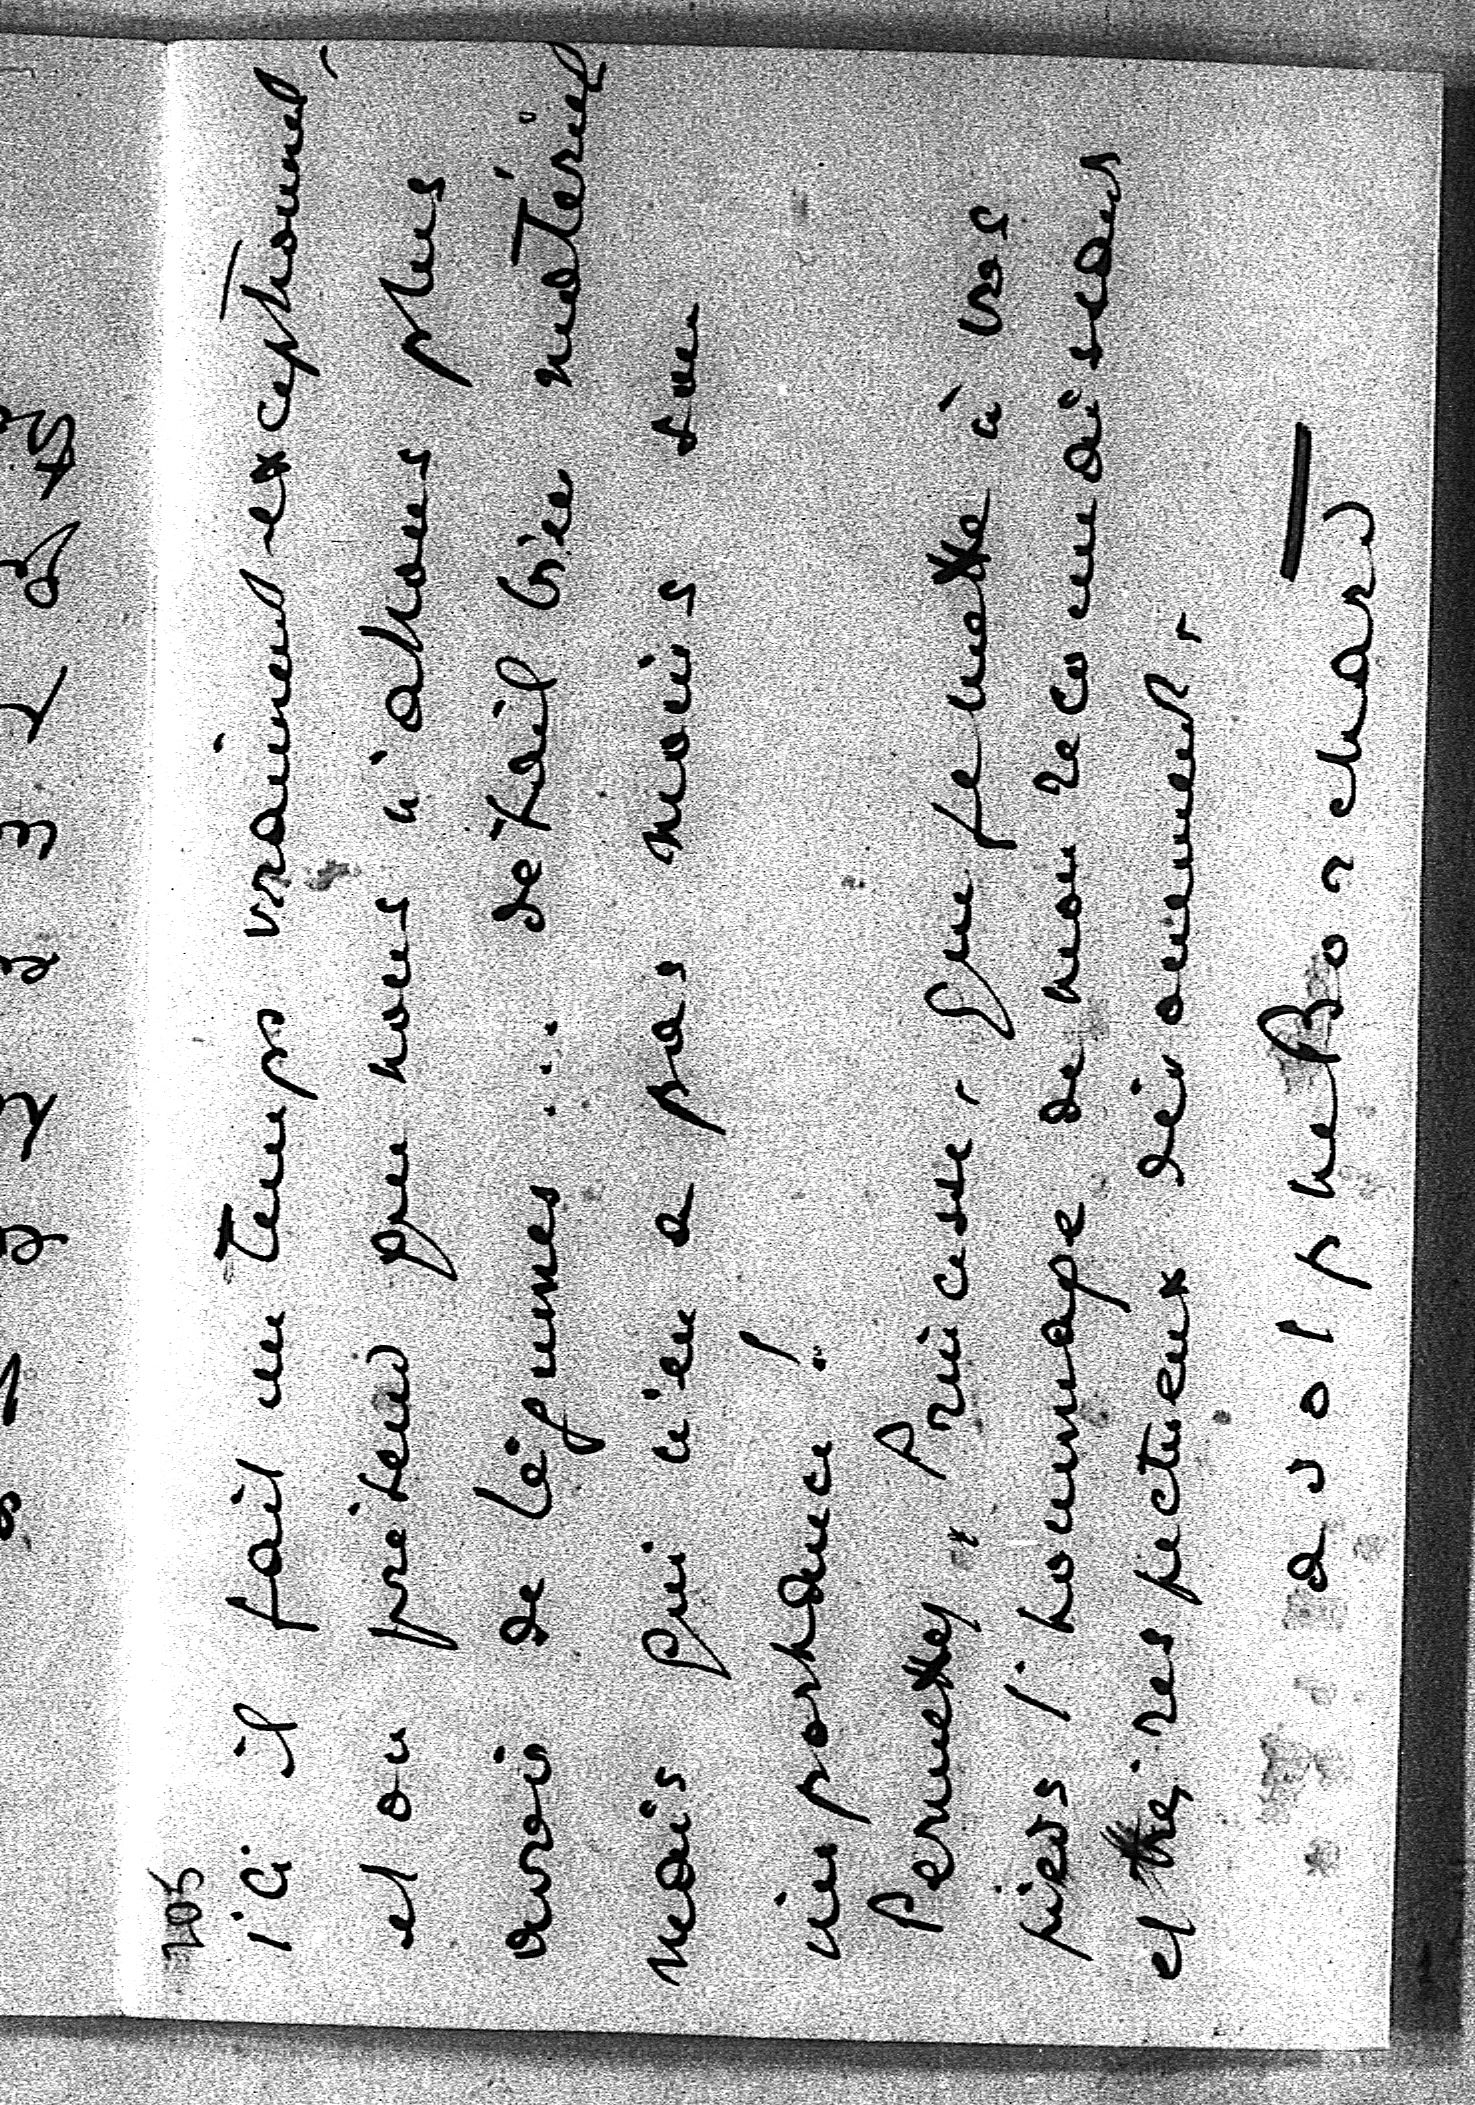 205
ici il fait un temps vraiment exceptionnel,
et on prétend que nous n'aurons plus
de légumes ... détail bien matériel
mais qui n'en a pas moins son
importance !
Permettez, Princesse, que je mette à vos
pieds l'hommage de mon reconnaissant
et très respectueux dévouement,
adolphe Borchard